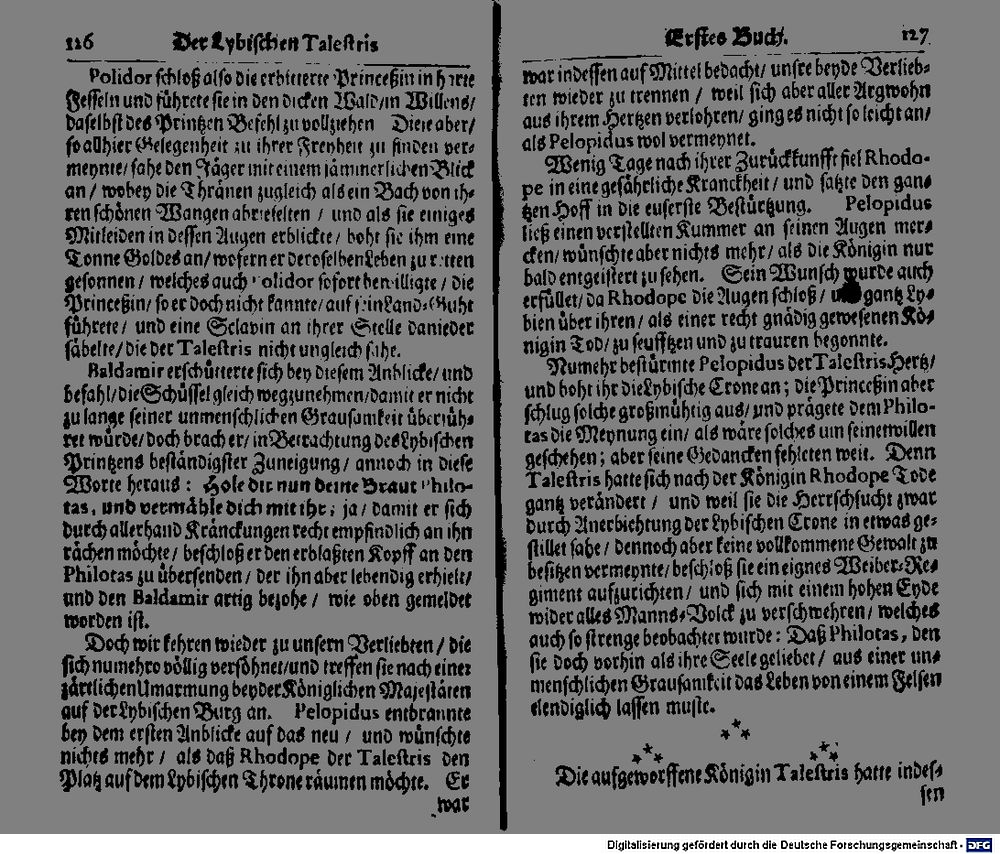 126 Der Lybischen Talestris
Polidor schloß also die erbitterte Princeßin in harte
Fesseln und führete sie in den dicken Wald/in Willens/
daselbst des Printzen Befehl zu vollziehen Diese aber/
so allhier Gelegenheit zu ihrer Freyheit zu finden ver-
meynte/sahe den Jäger mit einem jämmerlichen Blick
an / wobey die Thränen zugleich als ein Bach von ih-
ren schönen Wangen abrieselten / und als sie einiges
Mitleiden in dessen Augen erblickte/ boht sie ihm eine
Tonne Goldes an/ wofern er deroselben Leben zu retten
gesonnen / welches auch Polidor sofort bewilligte / die
Princeßin/ so er doch nicht kannte/ auf sein Land-Guht
führete / und eine Sclavin an ihrer Stelle danieder
säbelte/ die der Talestris nicht ungleich sahe.
Baldamir erschütterte sich bey diesem Anblicke/ und
befahl/ die Schüssel gleich wegzunehmen/ damit er nicht
zu lange seiner unmenschlichen Grausamkeit überfüh-
ret würde/ doch brach er/ in Betrachtung des Lybischen
Printzens beständigster Zuneigung / annoch in diese
Worte heraus: Hole dir nun deine Braut Philo-
tas, und vermähle dich mit ihr; ja/ damit er sich
durch allerhand Kränckungen recht empfindlich an ihn
rächen möchte/ beschloß er den erblaßten Kopff an den
Philotas zu übersenden/ der ihn aber lebendig erhielt/
und den Baldamir artig bezohe / wie oben gemeldet
worden ist.
Doch wir kehren wieder zu unsern Verliebten / die
sich numehro völlig versöhnet/und treffen sie nach einer
zärtlichen Umarmung beyder Königlichen Majestäten
auf der Lybischen Burg an. Pelopidus entbrannte
bey dem ersten Anblicke auf das neu / und wünschte
nichts mehr / als daß Rhodope der Talestris den
Platz auf dem Lybischen Throne räumen möchte. Er
war
Erstes Buch. 127
war indessen auf Mittel bedacht/ unsre beyde Verlieb-
ten wieder zu trennen / weil sich aber aller Argwohn
aus ihrem Hertzen verlohren/ ging es nicht so leicht an/
als Pelopidus wol vermeynet.
Wenig Tage nach ihrer Zurückkunfft fiel Rhodo-
pe in eine gefährliche Kranckheit/ und satzte den gan-
tzen Hoff in die euserste Bestürtzung. Pelopidus
ließ einen verstellten Kummer an seinen Augen mer-
cken/ wünschte aber nichts mehr/ als die Königin nur
bald entgeistert zu sehen. Sein Wunsch wurde auch
erfüllet/ da Rhodope die Augen schloß/ und gantz Ly-
bien über ihren/ als einer recht gnädig gewesenen Kö-
nigin Tod/ zu seufftzen und zu trauren begonnte.
Numehr bestürmte Pelopidus der Talestris Hertz/
und boht ihr die Lybische Crone an; die Princeßin aber
schlug solche großmühtig aus/ und prägete dem Philo-
tas die Meynung ein/ als wäre solches um seinetwillen
geschehen; aber seine Gedancken fehleten weit. Denn
Talestris hatte sich nach der Königin Rhodope Tode
gantz verändert / und weil sie die Herrschsucht zwar
durch Anerbiehtung der Lybischen Crone in etwas ge-
stillet sahe/ dennoch aber keine vollkommene Gewalt zu
besitzen vermeynte/ beschloß sie ein eignes Weiber-Re-
giment aufzurichten/ und sich mit einem hohen Eyde
wider alles Manns-Volck zu verschwehren/ welches
auch so strenge beobachtet wurde: Daß Philotas, den
sie doch vorhin als ihre Seele geliebet/ aus einer un-
menschlichen Grausamkeit das Leben von einem Felsen
elendiglich lassen muste.
Die aufgeworffene Königin Talestris hatte indes-
sen
Digitalisierung gefördert durch die Deutsche Forschungsgemeinschaft - DFG